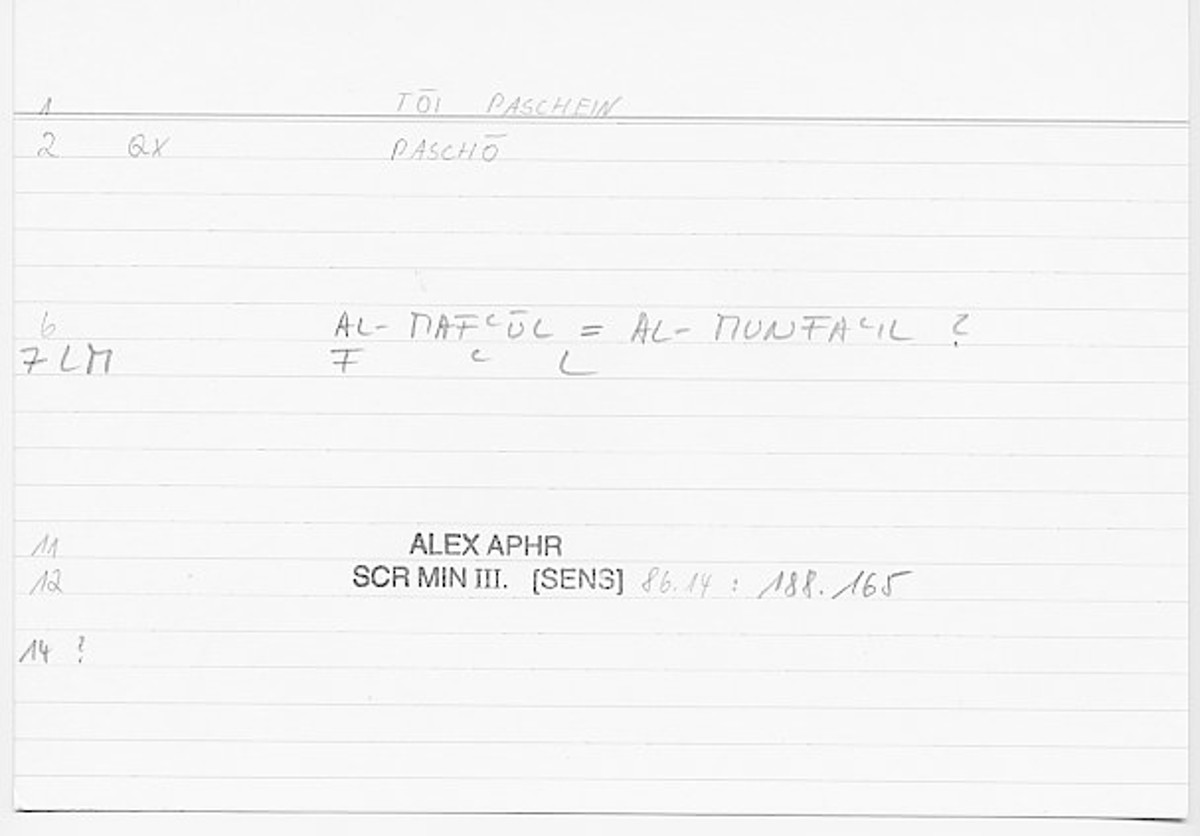 1 TŌI PASCHEIN
2 QX PASCHŌ
6 AL- MAFᶜŪL = AL- MUNFAᶜIL ?
7 LM F ᶜ L
11 ALEX APHR
12 SCR MIN III. [SENS] 86.14 : 188.165
14 ?